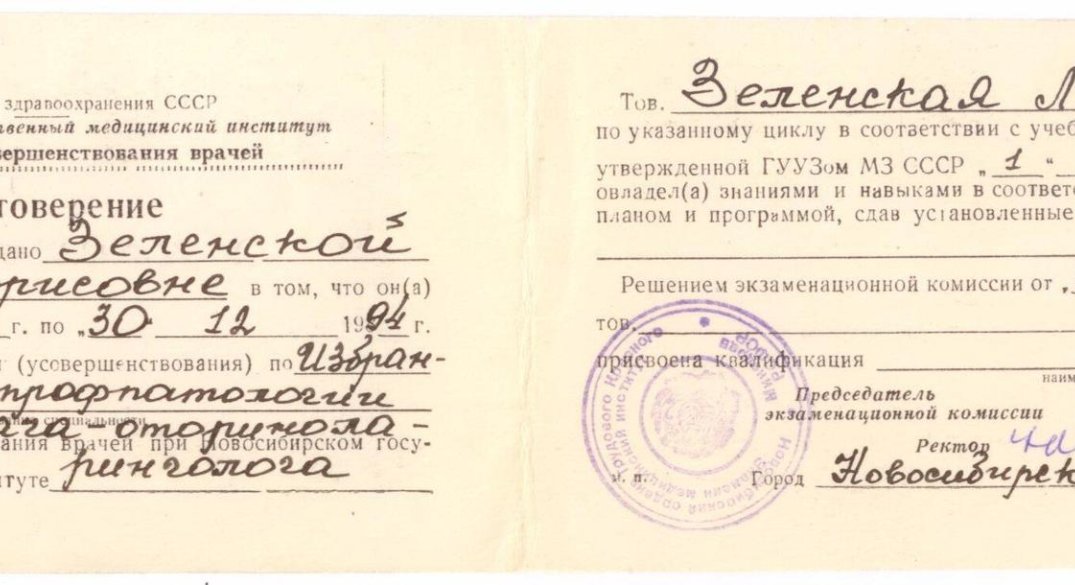 здравоохранения СССР
твенный медицинский институт
вершенствования врачей
товерение
дано Зеленской
рисовне в том, что он(а)
г. по „30" 12 1994 г.
и (усовершенствования) по Избран-
профпатологии
специальности
ача-оторинола-
ания врачей при Новосибирском госу-
итуте ринголога
Тов. Зеленская Л
по указанному циклу в соответствии с учеб
утвержденной ГУУЗом МЗ СССР „ 1 “
овладел(а) знаниями и навыками в соответс
планом и программой, сдав установленные
Решением экзаменационной комиссии от „
тов.
присвоена квалификация
наим
Председатель
экзаменационной комиссии
Ректор
м. п. Город Новосибирск